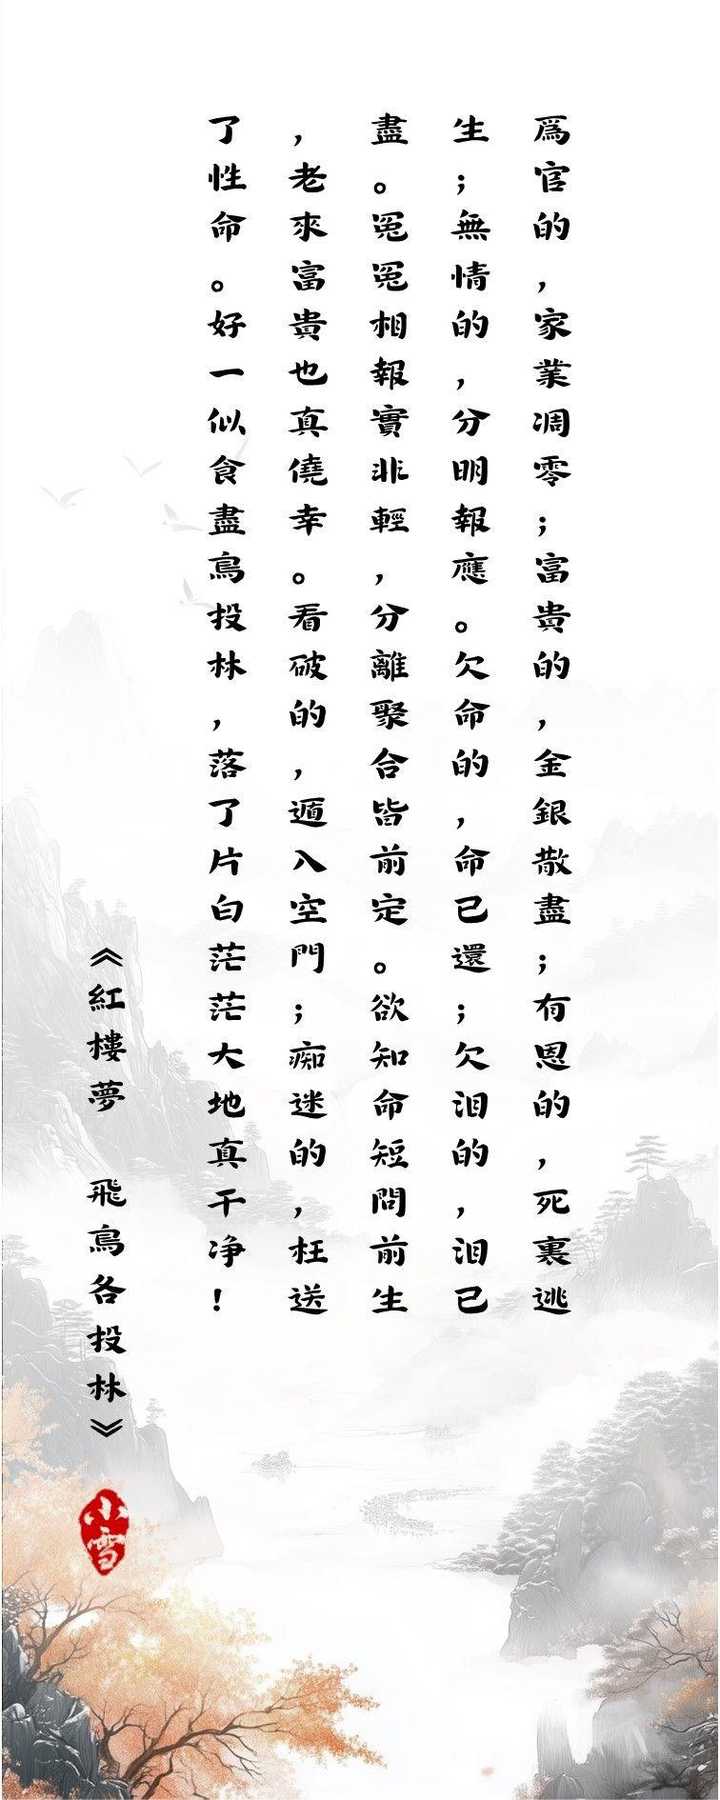 爲官的，家業凋零；富貴的，金銀散盡；有恩的，死裏逃
生；無情的，分明報應。欠命的，命已還；欠泪的，泪已
盡。冤冤相報實非輕，分離聚合皆前定。欲知命短問前生
，老來富貴也真僥幸。看破的，遁入空門；痴迷的，枉送
了性命。好一似食盡鳥投林，落了片白茫茫大地真干净！
《紅樓夢　飛鳥各投林》
小雪